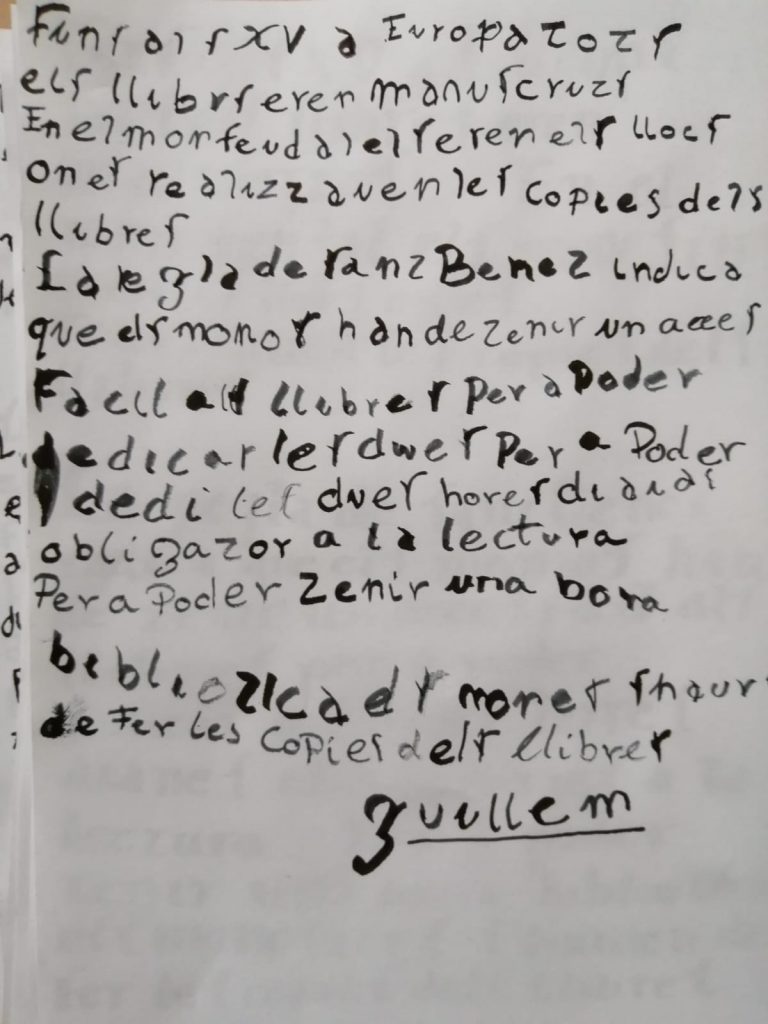 Fins al s XV a Europa tots
els llibrs eren manuscruts
En el mon feudal els eren els llocs
on es realitzzaven les copies dels
llibres
La regla de sant Benet indica
que els monos han de tenir un acces
Facil als llibres per a poder
dedicar les dues per a poder
dedi les dues hores diaias
obligator a la lectura
Per a Poder tenir una bona
biblioteca els mones s haur
de Fer les copies dels llibres
guillem